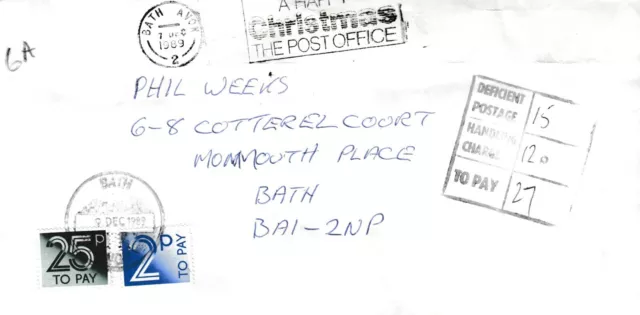 BATH AVON
7 DEC
1989
2
A HAPPY
Christmas
THE POST OFFICE
6A
PHIL WEEKS
6-8 COTTEREL COURT
MONMOUTH PLACE
BATH
BA1-2NP
DEFICIENT
POSTAGE 15
HANDLING
CHARGE 12
TO PAY 27
BATH
9 DEC 1989
25p
TO PAY
2p
TO PAY